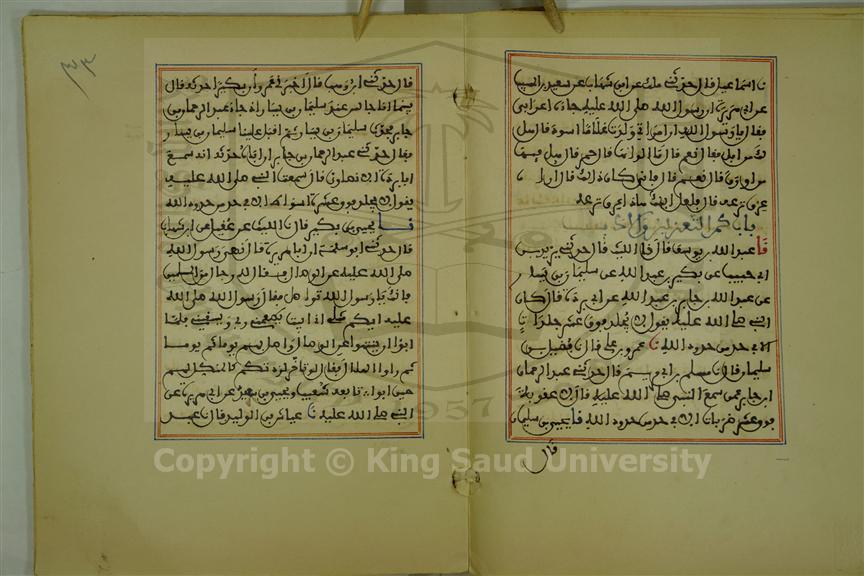 نا اسماعيل قال حدثني ملك عن ابن شهاب عن سعيد بن المسيب
عن ابي هريرة ان رسول الله صلى الله عليه جاءه اعرابي
فقال يا رسول الله ان امراتي ولدت غلاما اسود قال هل
لك من ابل فقال نعم قال ما الوانها قال حمر قال هل فيها
من اورق قال نعم قال فانى كان ذلك قال اراه
عرق نزعه قال فلعل ابنك هذا نزعه عرق
باب كم التعزير والادب
نا عبد الله بن يوسف قال نا الليث قال حدثني يزيد بن
ابي حبيب عن بكير بن عبد الله عن سليمان بن يسار
عن عبد الرحمان بن جابر بن عبد الله عن ابي بردة قال كان
النبي صلى الله عليه يقول لا يجلد فوق عشر جلدات
الا في حد من حدود الله نا عمرو بن علي قال نا فضيل بن
سليمان قال نا مسلم بن ابي مريم قال حدثني عبد الرحمان
ابن جابر عمن سمع النبي صلى الله عليه قال لا عقوبة
فوق عشر ضربات الا في حد من حدود الله نا يحيى بن سليمان
قال
قال حدثني ابن وهب قال اخبرني عمرو ان بكيرا حدثه قال
بينما انا جالس عند سليمان بن يسار اذ جاء عبد الرحمان بن
جابر فحدث سليمان بن يسار ثم اقبل علينا سليمان بن يسار
فقال حدثني عبد الرحمان بن جابر ان اباه حدثه انه سمع
ابا بردة الانصاري قال سمعت النبي صلى الله عليه
يقول لا يجلد فوق عشرة اسواط الا في حد من حدود الله
نا يحيى بن بكير قال نا الليث عن عقيل عن ابن شهاب
قال حدثني ابو سلمة ان ابا هريرة قال نهى رسول الله
صلى الله عليه عن الوصال فقال له رجال من المسلمين
فانك يا رسول الله تواصل فقال رسول الله صلى الله
عليه ايكم مثلي اني ابيت يطعمني ربي ويسقيني فلما
ابوا ان ينتهوا عن الوصال واصل بهم يوما ثم يوما
ثم راوا الهلال فقال لو تاخر لزدتكم كالمنكل بهم
حين ابوا نا تابعه شعيب ويحيى بن سعيد عن ابي هريرة عن
النبي صلى الله عليه نا عياش بن الوليد قال نا عبد
Copyright © King Saud University
1957